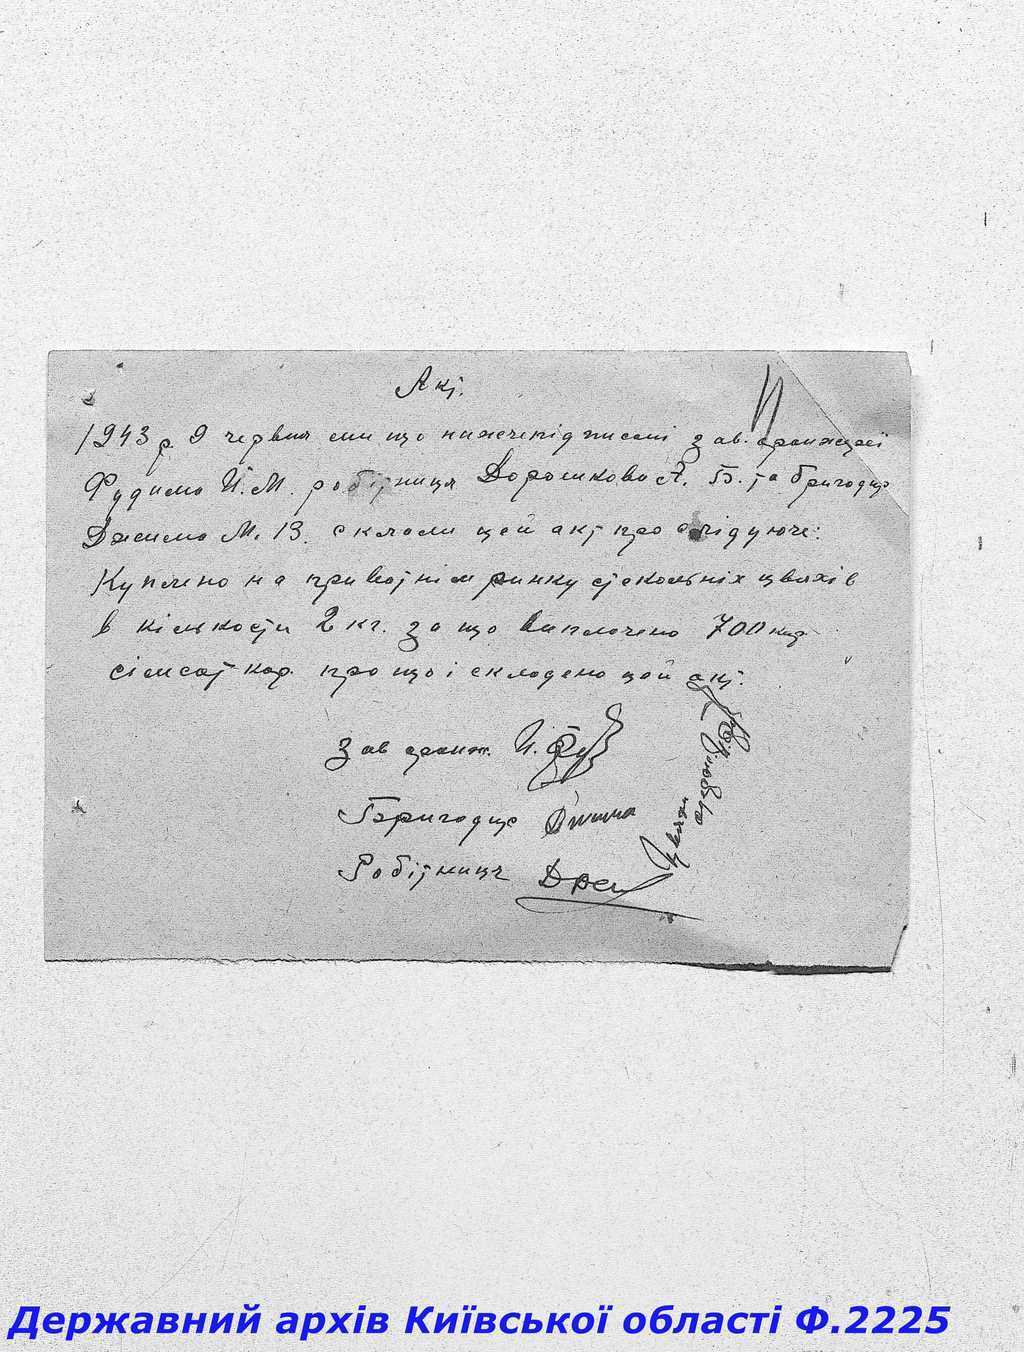 Акт.
1943 р 9 червня ми що нижчепідписані зав. оранжереї
Фудима Й. М. робітниця Дорошкова А. Б. та бригадир
М. В. склали цей акт про слідуюче:
Куплено на приватнім ринку стекольніх цвяхів
в кількости 2 кг. за що виплочено 700 кар
сімсот кар. про що і складено цей акт.
Зав оранж. Й. Фуд
Бригадир
Робітниця
Цвяхи
Державний архів Київської області Ф.2225